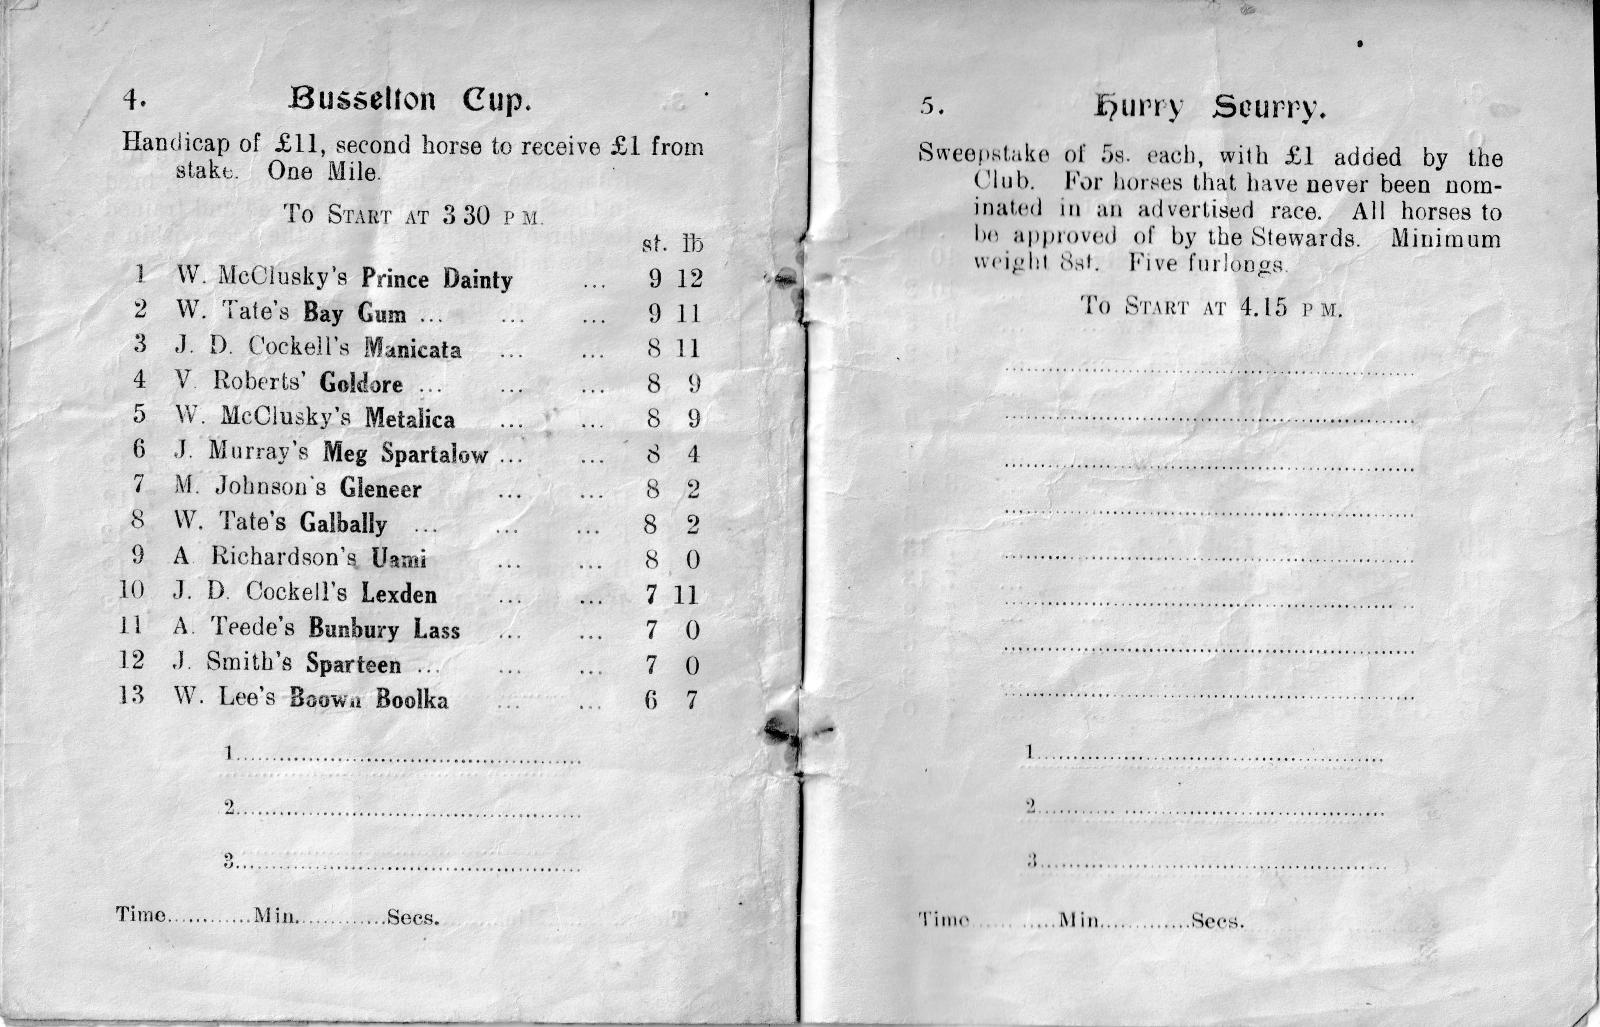 4. Busselton Cup.
Handicap of £11, second horse to receive £1 from
stake. One Mile.
To Start at 3 30 p m.
st. lb
1 W. McClusky's Prince Dainty ... 9 12
2 W. Tate's Bay Gum ... ... ... 9 11
3 J. D. Cockell's Manicata ... ... 8 11
4 V. Roberts' Goldore ... ... ... 8 9
5 W. McClusky's Metalica ... ... 8 9
6 J. Murray's Meg Spartalow ... ... 8 4
7 M. Johnson's Gleneer ... ... 8 2
8 W. Tate's Galbally ... ... ... 8 2
9 A Richardson's Uami ... ... 8 0
10 J. D. Cockell's Lexden ... ... 7 11
11 A. Teede's Bunbury Lass ... ... 7 0
12 J. Smith's Sparteen ... ... ... 7 0
13 W. Lee's Boown Boolka ... ... 6 7
1..............................
2..............................
3..............................
Time............Min............Secs.
5. Hurry Scurry.
Sweepstake of 5s. each, with £1 added by the
Club. For horses that have never been nom-
inated in an advertised race. All horses to
be approved of by the Stewards. Minimum
weight 8st. Five furlongs.
To Start at 4.15 p m.
1..............................
2..............................
3..............................
Time............Min............Secs.